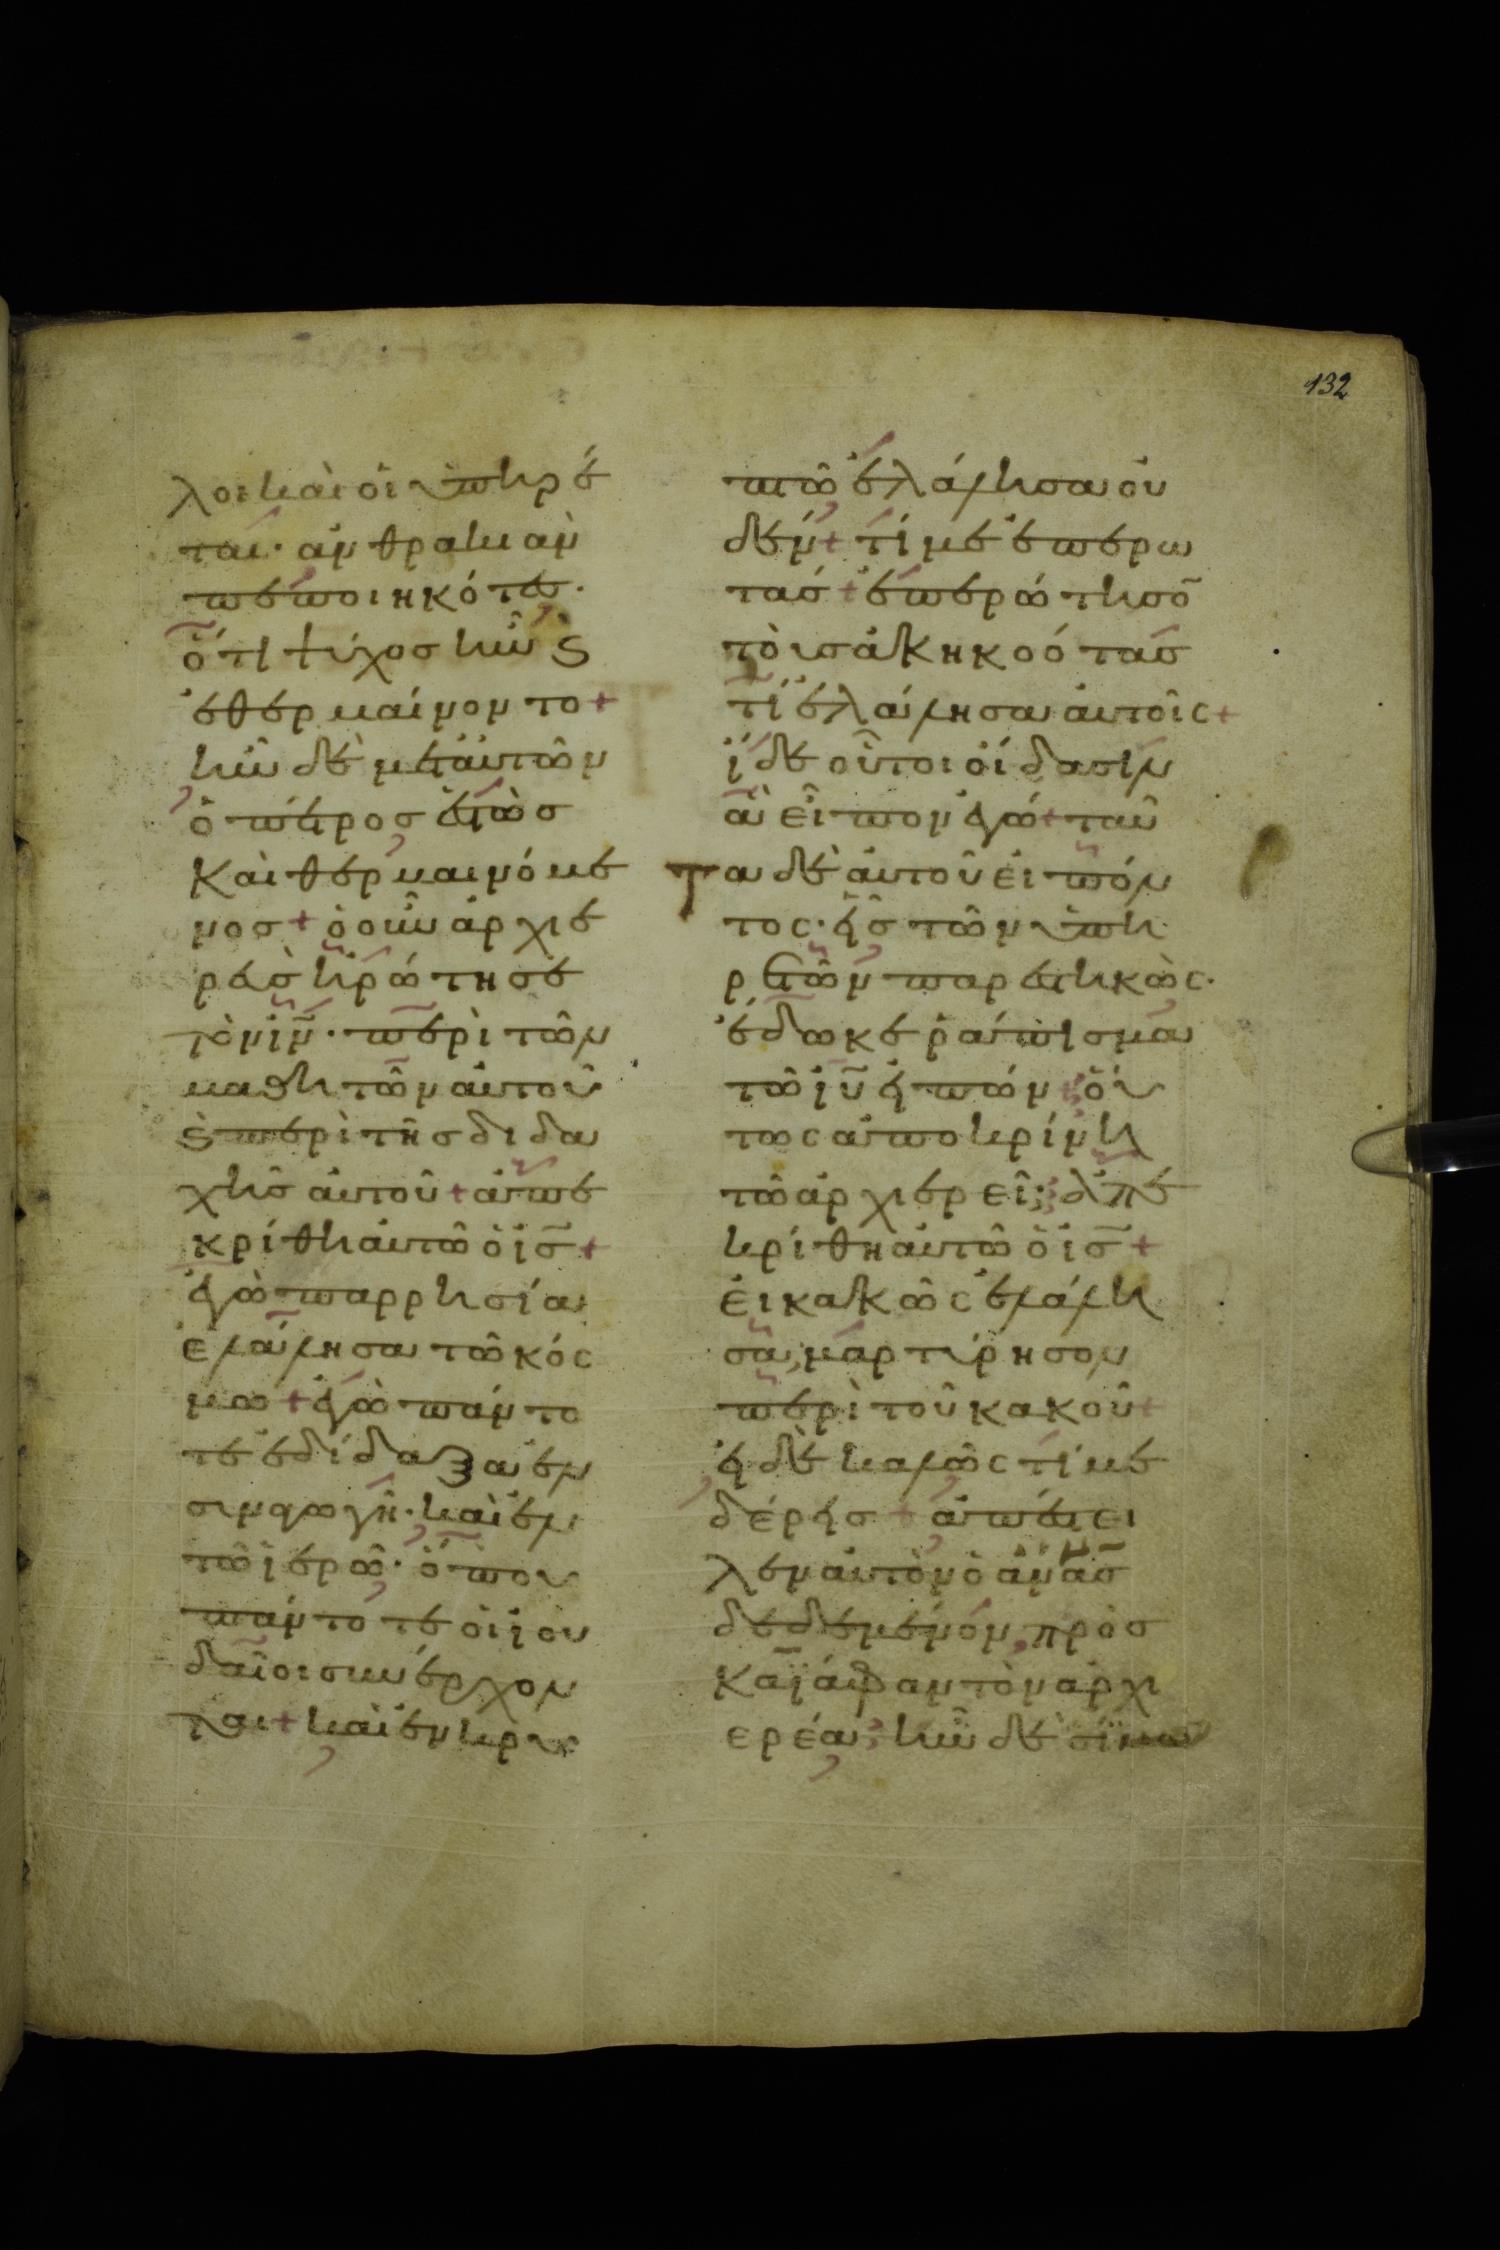 132
λοι καὶ οἱ ὑπηρέ
ται· ἀνθρακιὰν
πεποιηκότες·
ὅτι ψύχος ἦν ϗ
ἐθερμαίνοντο +
ἦν δὲ μετ' αὐτῶν
ὁ πέτρος ἑστὼς
καὶ θερμαινόμε
νος + ὁ οὖν ἀρχιε
ρεὺς ἠρώτησε
τὸν ἰν̅· περὶ τῶν
μαθητῶν αὐτοῦ
ϗ περὶ τῆς διδα
χῆς αὐτοῦ + ἀπε
κρίθη αὐτῶ ὁ ἰς̅ +
ἐγὼ παρρησία
ἐλάλησα τῶ κόσ
μω + ἐγὼ πάντο
τε ἐδίδαξα ἐν
συναγωγῆ· καὶ ἐν
τῶ ἱερῶ· ὅπου
πάντοτε οἱ ἰου
δαῖοι συνέρχον
ται + καὶ ἐν κρυ
πτῶ ἐλάλησα οὐ
δέν + τί με ἐπερω
τᾶς + ἐπερώτησο̅
τοὺς ἀκηκοότας
τί ἐλάλησα αὐτοῖς +
ἴδε οὗτοι οἴδασιν
ἃ εἶπον ἐγώ + ταῦ
τα δὲ αὐτοῦ εἰπόν
τος· εἷς τῶν ὑπη
ρετῶν παρεστηκὼς·
ἔδωκε ῥάπισμα
τῶ ἰυ̅ εἰπών + οὕ
τως ἀποκρίνη
τῶ ἀρχιερεῖ; ἀπε
κρίθη αὐτῶ ὁ ἰς̅ +
εἰ κακῶς ἐλάλη
σα, μαρτύρησον
περὶ τοῦ κακοῦ +
εἰ δὲ καλῶς τί με
δέρεις + ἀπέστει
λεν αὐτὸν ὁ ἄννας
δεδεμένον πρὸς
καϊάφαν τὸν ἀρχι
ερέα; ἦν δὲ σίμων